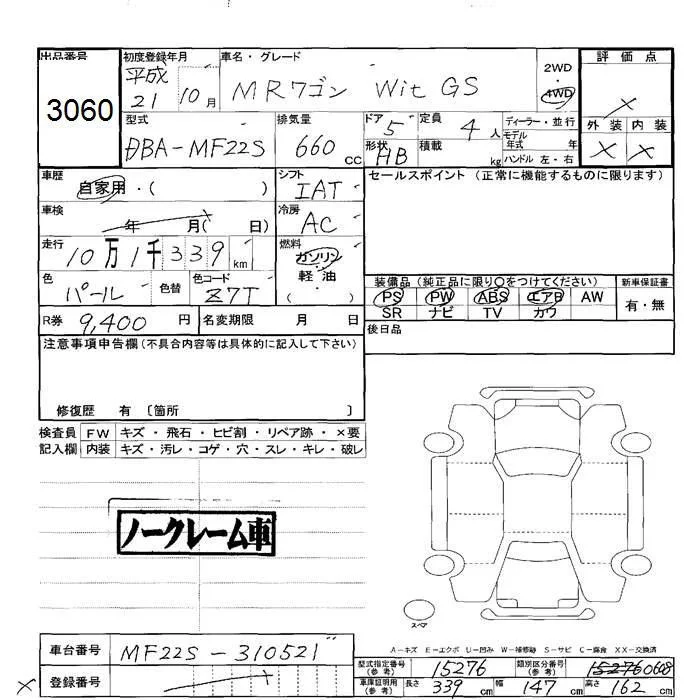 出品番号 初度登録年月 車名・グレード 評価点
3060 平成 21 10月 MRワゴン Wit GS 2WD 4WD ×
型式 排気量 ドア 定員 ディーラー・並行 外装 内装
DBA-MF22S 660cc 5 4人 モデル年式 年 × ×
形状 HB 積載 kg ハンドル 左・右
車歴 自家用・( ) シフト IAT セールスポイント (正常に機能するものに限ります)
車検 年 月( 日) 冷房 AC
走行 10万1千339km 燃料 ガソリン 軽・油 ( )
色 パール 色替 色コード Z7T 装備品 (純正品に限り○をつけてください) 新車保証書
PS PW ABS エアB AW 有・無
SR ナビ TV カワ
R券 9,400円 名変期限 月 日 後日品
注意事項申告欄(不具合内容等は具体的に記入して下さい)
修復歴 有 〔箇所 〕
検査員 FW キズ・飛石・ヒビ割・リペア跡・×要
記入欄 内装 キズ・汚レ・コゲ・穴・スレ・キレ・破レ
ノークレーム車
スペア
A-キズ E-エクボ U-凹み W-補修跡 S-サビ C-腐食 XX-交換済
車台番号 MF22S-310521 型式指定番号(参考) 15276 類別区分番号(参考) 15276 0608
× 登録番号 車庫証明用(参考) 長さ 339cm 幅 147cm 高さ 162cm